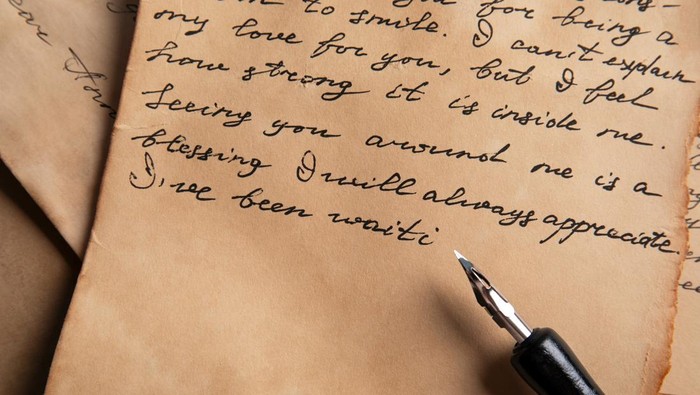 you for being a
to smile. I can't explain
my love for you, but I feel
how strong it is inside me.
Seeing you around me is a
blessing I will always appreciate.
I've been waiti